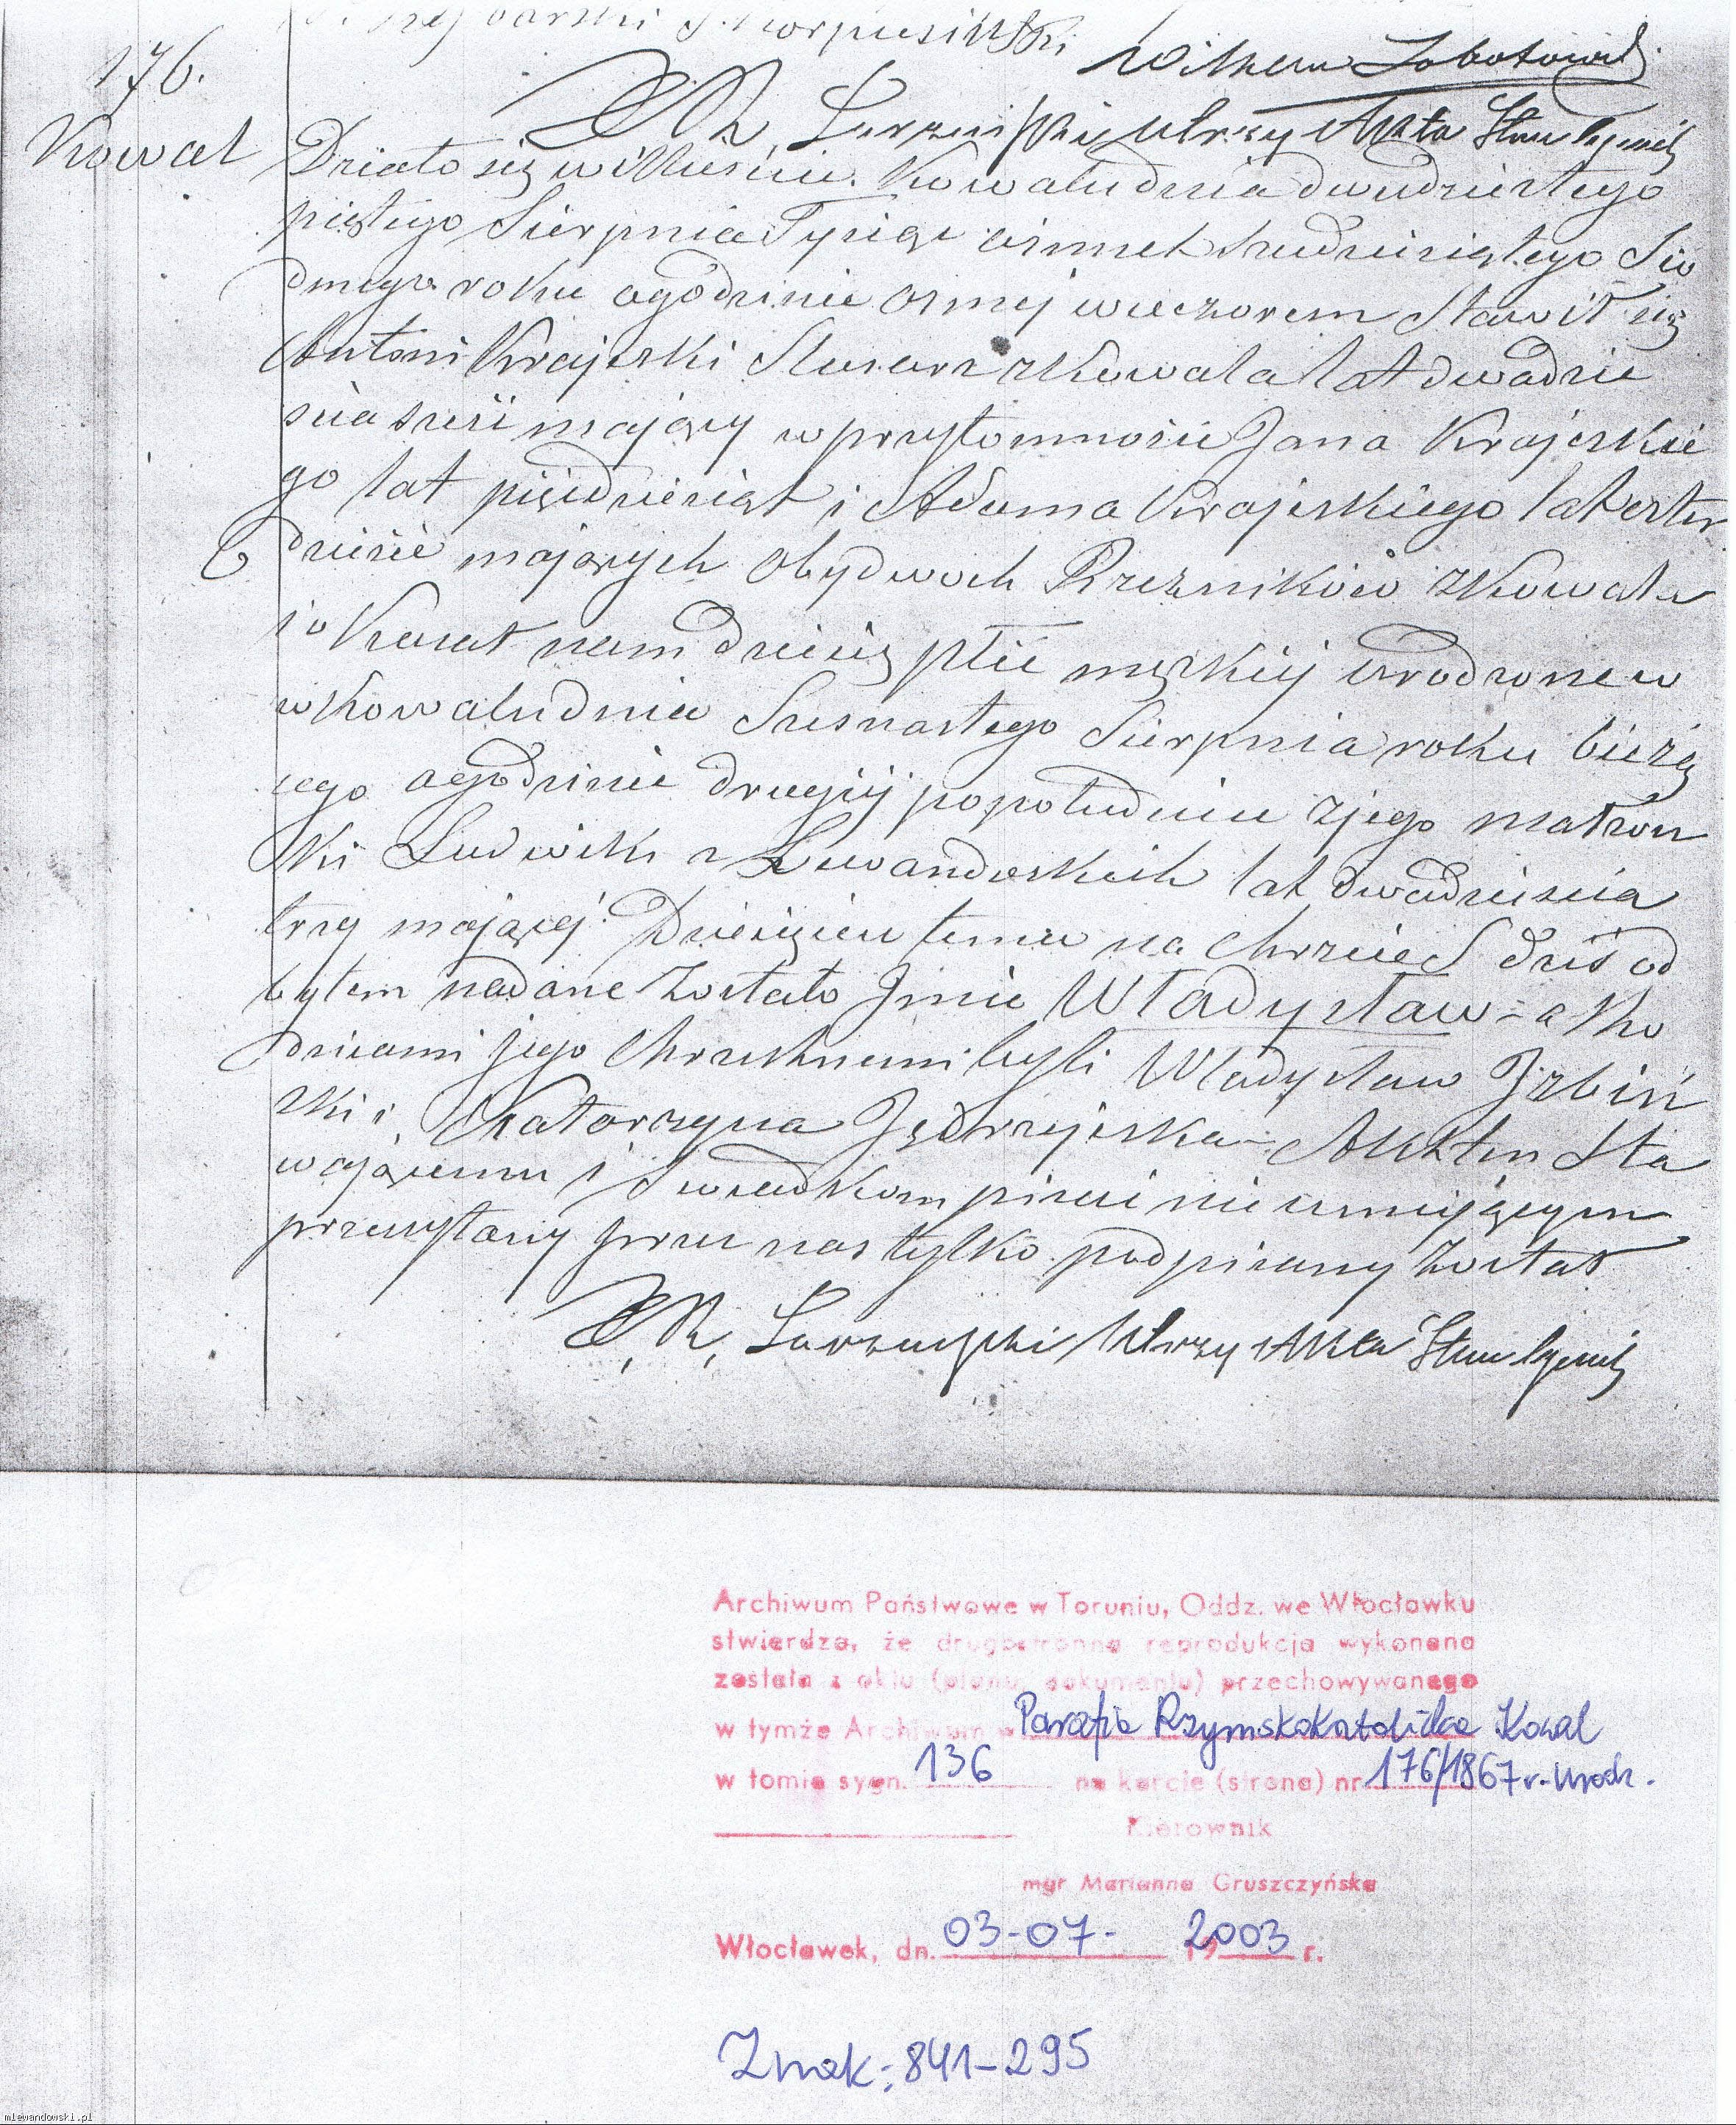 176.
Kowal
Działo się w Mieście Kowalu dnia dwudziestego
piątego Sierpnia Tysiąc ośmset sześdziesiątego Sió
dmego roku o godzinie ósmej wieczorem Stawił się
Antoni Krajeski Slusarz z Kowala lat dwadzie
ścia sześć mający w przytomności Jana Krajeskie
go lat pięćdziesiąt i Adama Krajeskiego lat czter
dzieście mających obydwóch Rzeźników z Kowala
i okazał nam dziecię płci męzkiej urodzone w
w Kowalu dnia Szesnastego Sierpnia roku bieżą
cego o godzinie drugiej popołudniu z jego małżon
ki Ludwiki z Lewandoskich lat dwadzieścia
trzy mającej. Dziecięciu temu na chrzcie S dziś od
bytem nadane zostało Jmie Władysław = a Ro
dzicami jego Chrzestnemi byli Władysław Jzbiń
ski i Katarzyna Jędrzejeska – Akt ten Sta
wającemu i Swiadkom pisać nie umiejącym
przeczytany przez nas tylko podpisany został
Utrzy Akta Stanu
Archiwum Państwowe w Toruniu, Oddz. we Włocławku
stwierdza, że drugostronna reprodukcja wykonana
została z aktu (planu, dokumentu) przechowywanego
w tymże Archiwum w Parafia Rzymskokatolicka Kowal
w tomie sygn. 136 na karcie (stronie) nr 176/1867 r. urodz.
Kierownik
mgr Marianna Gruszczyńska
Włocławek, dn. 03-07- 19 2003 r.
Znak: 841-295
mlewandowski.pl